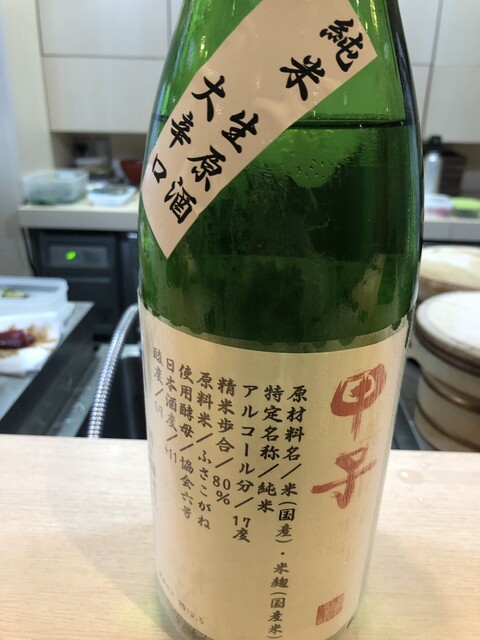 純米
生原酒
大辛口
甲子
原材料名/米(国産)・米麹(国産米)
特定名称/純米
アルコール分/17度
精米歩合/80%
原料米/ふさこがね
使用酵母/協会六号
日本酒度/+11
酸度/